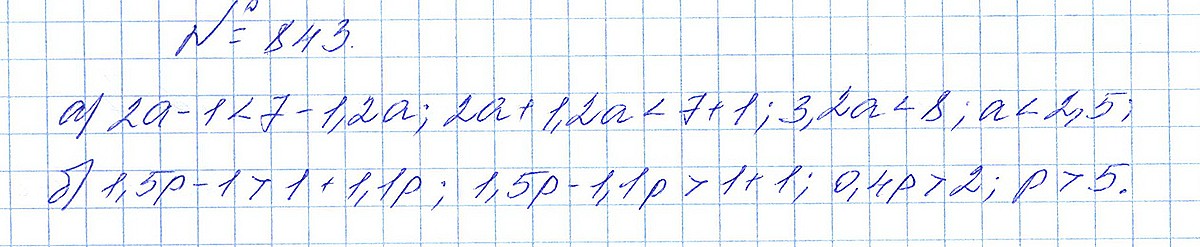 № 843.
а) 2a - 1 < 7 - 1,2a; 2a + 1,2a < 7 + 1; 3,2a < 8; a < 2,5;
б) 1,5p - 1 > 1 + 1,1p; 1,5p - 1,1p > 1 + 1; 0,4p > 2; p > 5.